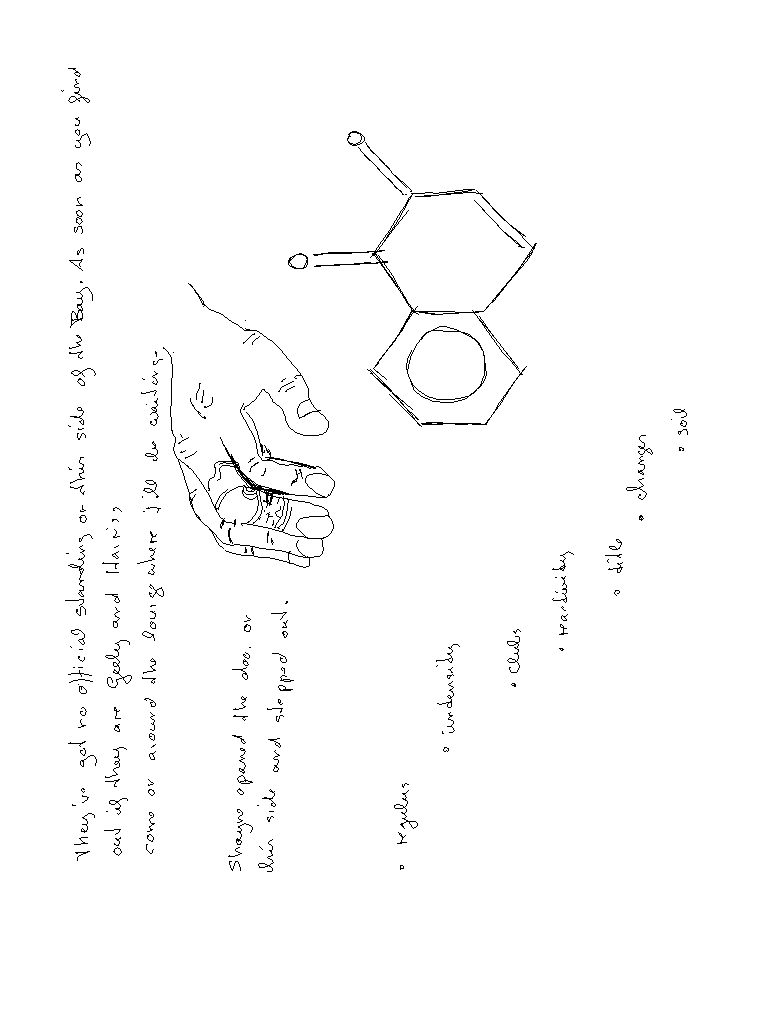 They've got no official standing on this side of the Bay. As soon as you find
out if they are Geely and Harris,
come on around the lounge where I'll be waiting.
Shayne opened the door on
his side and stepped out.
• regulus
• intensity
• clubs
• reactivity
• title
• changes
• soil